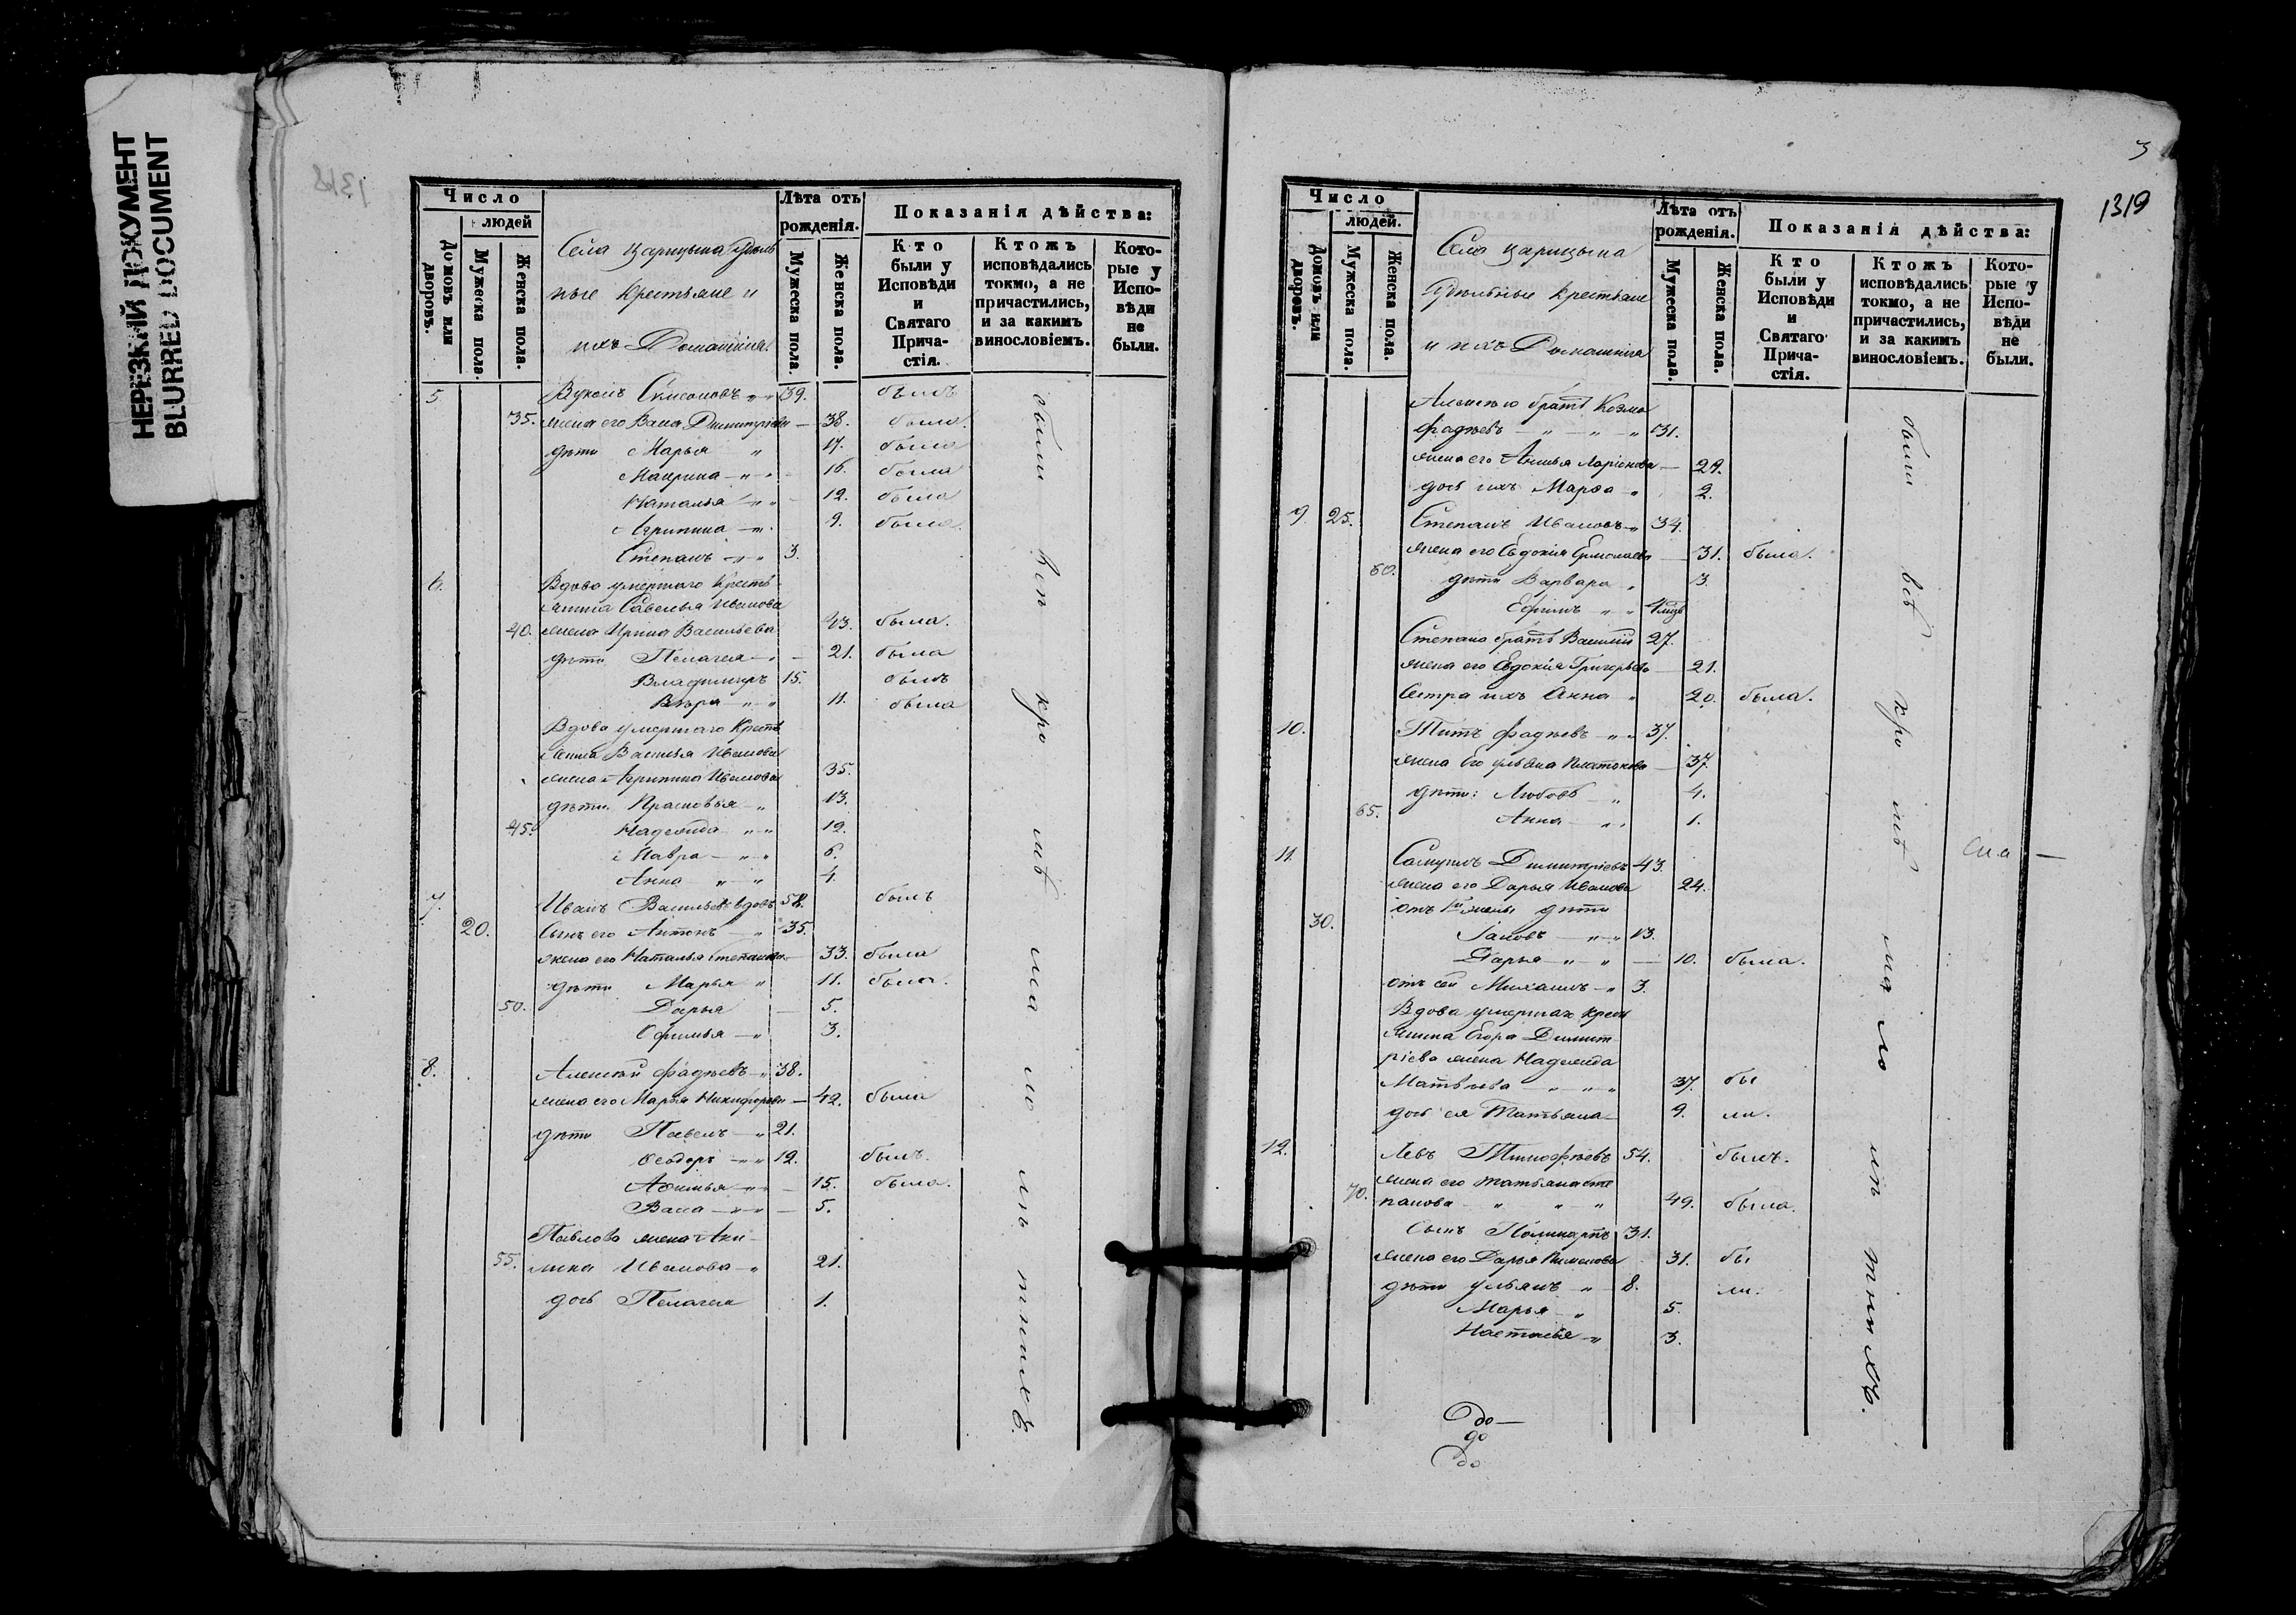 НЕРЕЗКИЙ ДОКУМЕНТ
BLURRED DOCUMENT
1318
Число
людей
Домовъ или дворовъ.
Мужеска пола.
Женска пола.
Села Царицына Удѣль
ные Крестьяне и
ихъ Домашнія.
Лѣта отъ рожденія.
Мужеска пола.
Женска пола.
Показанія дѣйства:
Кто были у Исповѣди и Святаго Причастія.
Ктожъ исповѣдались токмо, а не причастились, и за какимъ винословіемъ.
Которые у Исповѣди не были.
5. 39. былъ
35. жена его Васса Димитріева — 38. была.
дѣти Марья „ 17. была
Макрина „ 16. была
Наталья „ 12. была
Агрипина „ 9. была.
Степанъ „ 3.
6. Вдова умершаго Кресть
янина Савелья Иванова
40. жена Ирина Васильева 43. была.
дѣти Пелагея — 21. была
Владимиръ 15. былъ
Вѣра „ 11. была
Вдова умершаго Кресть
янина Василья Иванова
жена Агрипина Иванова 35.
дѣти Прасковья „ 13.
45. Надежда „ „ 12.
Мавра „ „ 6.
Анна „ „ 4.
7. Иванъ Васильевъ вдовъ 58. былъ
20. Сынъ его Антонъ „ 35.
жена его Наталья Степанова 33. была
дѣти Марья „ 11. была.
50. Дарья 5.
Офимья „ 3.
8. Алексѣй Фадѣевъ „ 38.
жена его Марья Никифорова — 42. была
дѣти Павелъ „ 21.
Ѳеодоръ „ 12. былъ.
Афимья — 15. была.
Васса — 5.
Павлова жена Аку-
55. лина Иванова „ 21.
дочь Пелагея 1.
3
1319
Число
людей.
Домовъ или дворовъ.
Мужеска пола.
Женска пола.
Села Царицына
Удѣльные Крестьяне
и ихъ Домашнія
Лѣта отъ рожденія.
Мужеска пола.
Женска пола.
Показанія дѣйства:
Кто были у Исповѣди и Святаго Причастія.
Ктожъ исповѣдались токмо, а не причастились, и за какимъ винословіемъ.
Которые у Исповѣди не были.
братъ Козма
Фадѣевъ „ „ „ 31.
жена его Ларіонова — 29.
дочь ихъ Марѳа „ 2.
9. 25. Степанъ Ивановъ „ 34.
жена его Евдокія Ермолаева 31. была.
60. дѣти Варвара „ 3.
Ефимъ „ „
Степана братъ Василій 27.
жена его Евдокія Григорьева 21.
Сестра ихъ Анна „ 20. была.
10. Титъ Фадѣевъ „ 37.
жена его Ульяна Платонова — 37.
дѣти: Любовь „ 4.
65. Анна „ 1.
11. Самуилъ Димитріевъ 43.
жена его Дарья Иванова 24.
отъ 1й жены дѣти
30. Іаковъ „ 13.
Дарья „ „ — 10. была.
отъ сей Михаилъ „ 3.
Вдова умершаго крестъ
янина Егора Димит-
ріева жена Надежда
Матвѣева „ „ „ 37. бы
дочь ея Татьяна 9. ли.
12. Левъ Тимофѣевъ 54. былъ.
жена его Татьяна Сте
70. панова „ „ „ 49. была.
Сынъ Поликарпъ 31.
жена его Дарья 31. бы
дѣти Ульянъ „ 8. ли.
Марья „ 5.
Настасья „ 3.